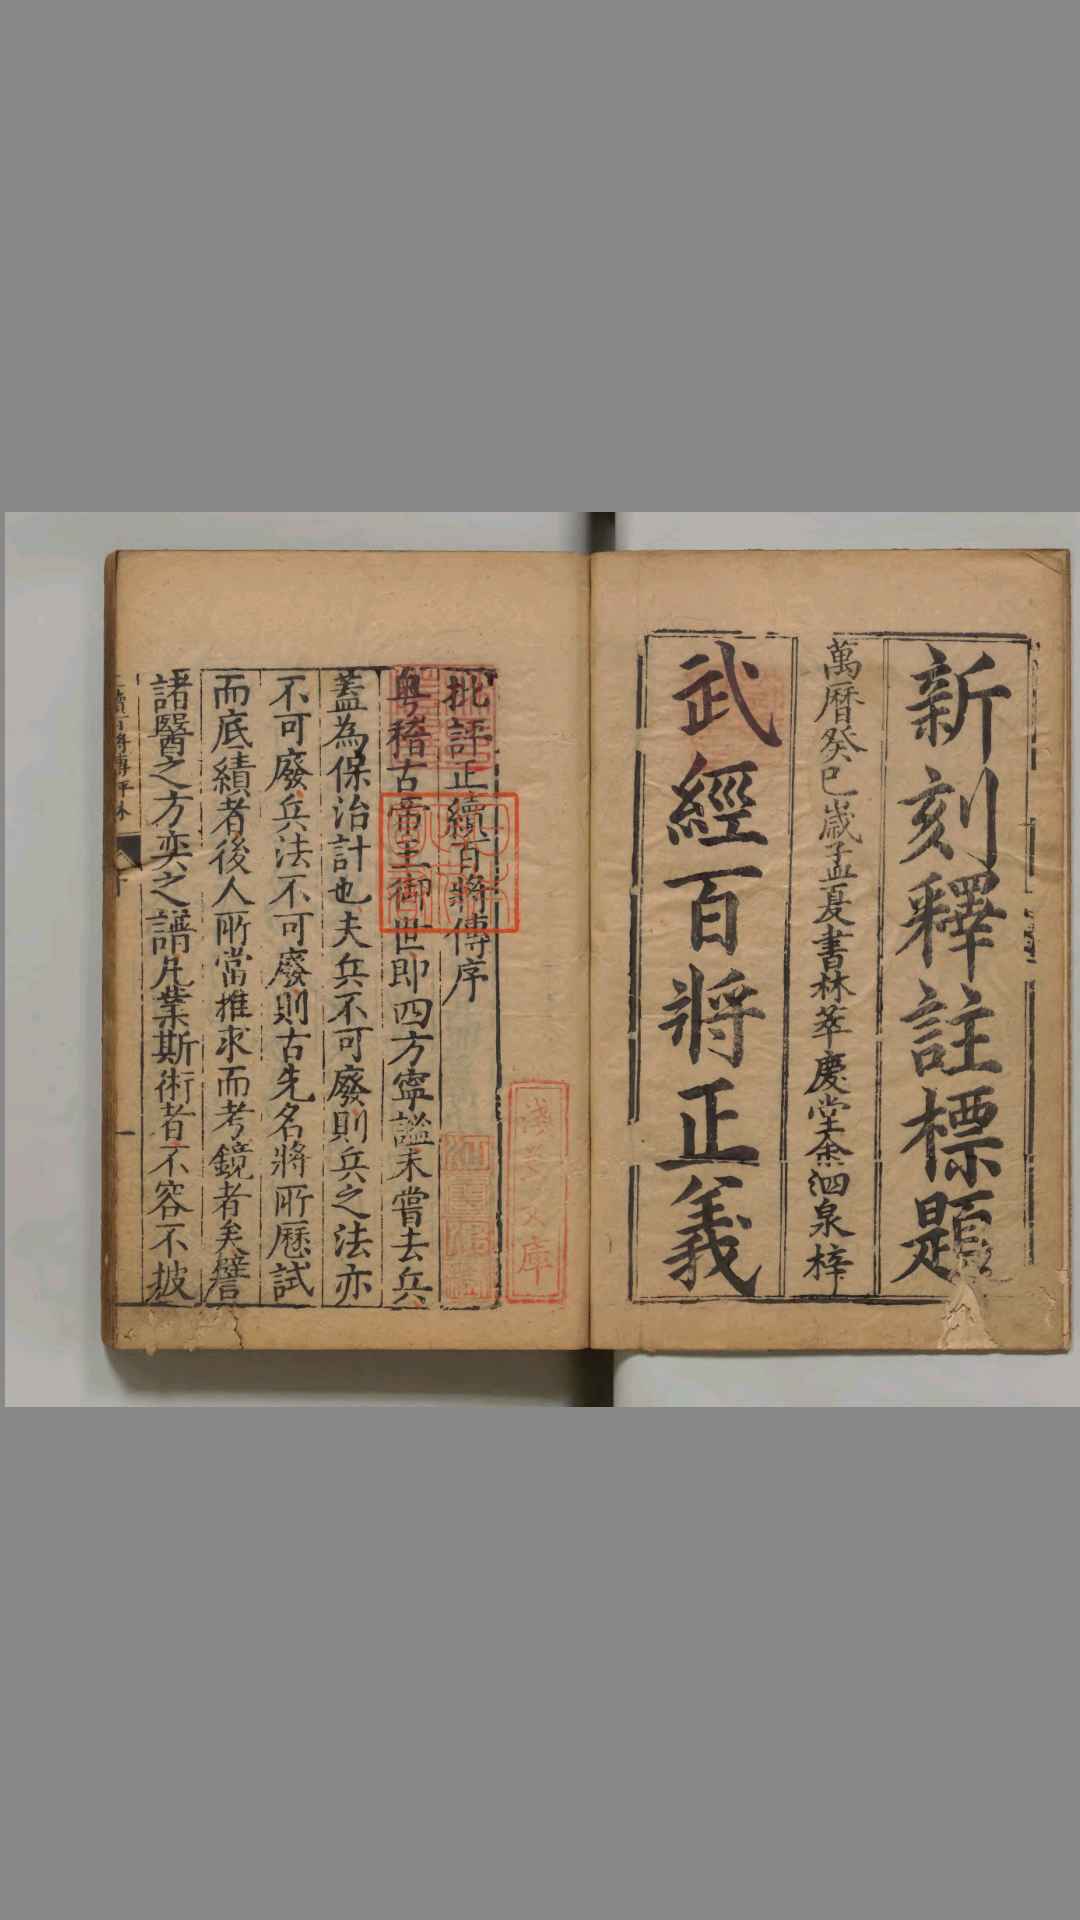 新刻釋註標題
萬曆癸巳歲孟夏書林萃慶堂余泗泉梓
武經百將正義
批評正續百將傳序
粵稽古帝王御世即四方寧謐未嘗去兵
蓋為保治計也夫兵不可廢則兵之法亦
不可廢兵法不可廢則古先名將所歷試
而底績者後人所當推求而考鏡者矣譬
諸醫之方奕之譜凡業斯術者不容不披
續百將傳評林
淺草文庫